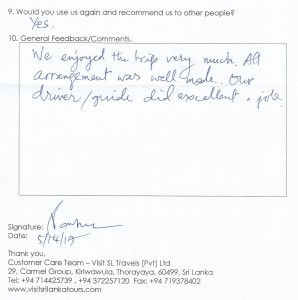 9. Would you use us again and recommend us to other people?
Yes.
10. General Feedback/Comments.
We enjoyed the trip very much. All
arrangement was well made. Our
driver/guide did excellent a job.
Signature:
Date: 5/14/17
Thank you,
Customer Care Team – Visit SL Travels [Pvt] Ltd
29, Carmel Group, Kiriwawula, Thorayaya, 60499, Sri Lanka
Tel: +94 714425739 , +94 372257120 Fax: +94 719378402
www.visitsrilankatours.com